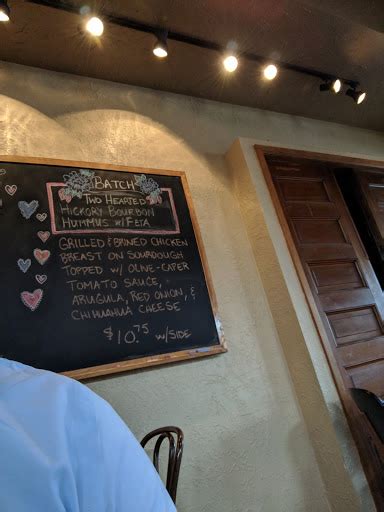 BATCH
TWO HEARTED
HICKORY BOURBON
HUMMUS W/FETA
GRILLED & BRINED CHICKEN
BREAST ON SOURDOUGH
TOPPED W/ OLIVE-CAPER
TOMATO SAUCE,
ARUGULA, RED ONION, &
CHIHUAHUA CHEESE
$10.75 W/SIDE